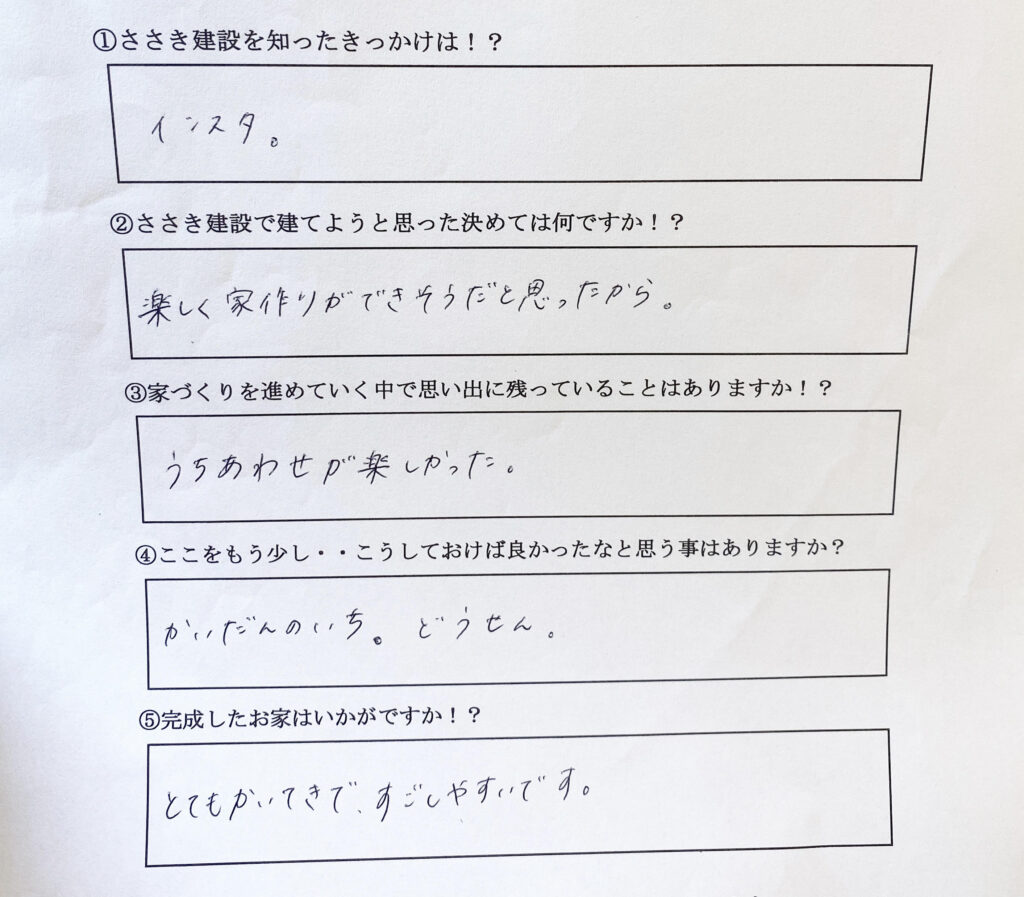 ①ささき建設を知ったきっかけは！？
インスタ。
②ささき建設で建てようと思った決めては何ですか！？
楽しく家作りができそうだと思ったから。
③家づくりを進めていく中で思い出に残っていることはありますか！？
うちあわせが楽しかった。
④ここをもう少し・・こうしておけば良かったなと思う事はありますか？
かいだんのいち。どうせん。
⑤完成したお家はいかがですか！？
とてもかいてきで、すごしやすいです。